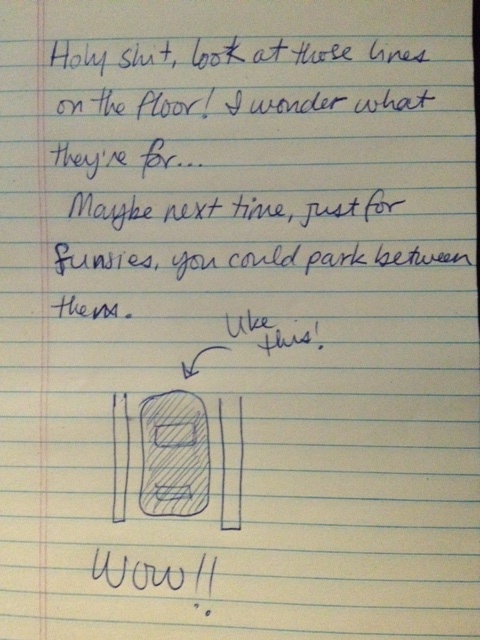 Holy shit, look at those lines
on the floor! I wonder what
they're for...
Maybe next time, just for
funsies, you could park between
them.
Like
this!
Wow!!